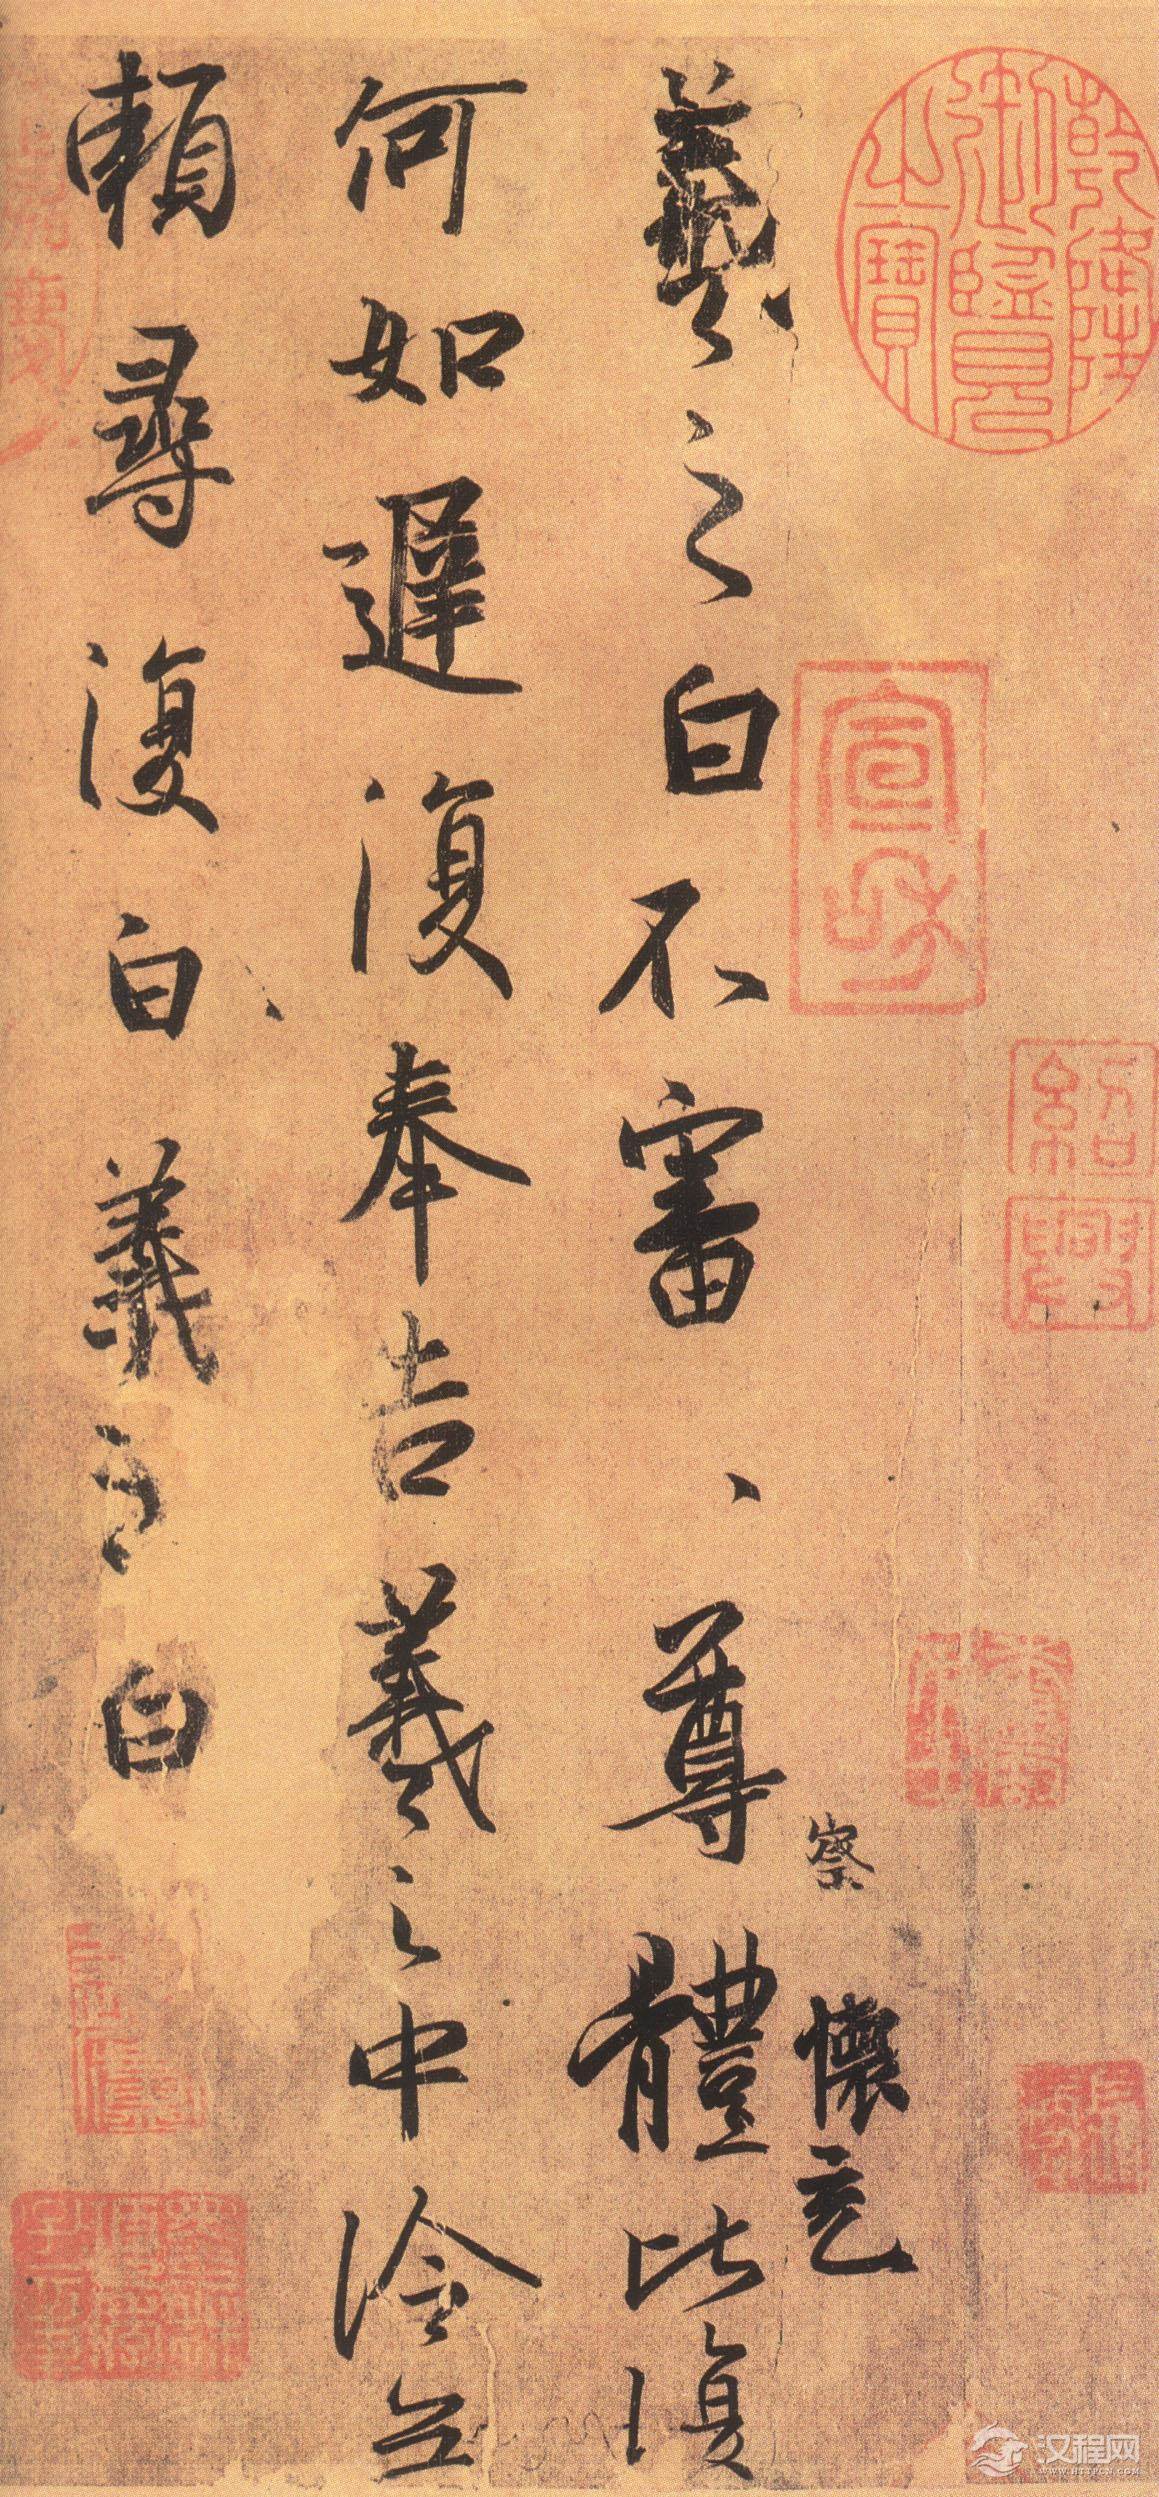 乾隆
御覽
之寶
紹興
宣和
察 懷充
羲之白不審、尊體比復
何如遲復奉告羲之中冷無
賴尋復白羲之白
汉程网
WWW.HTTPCN.COM